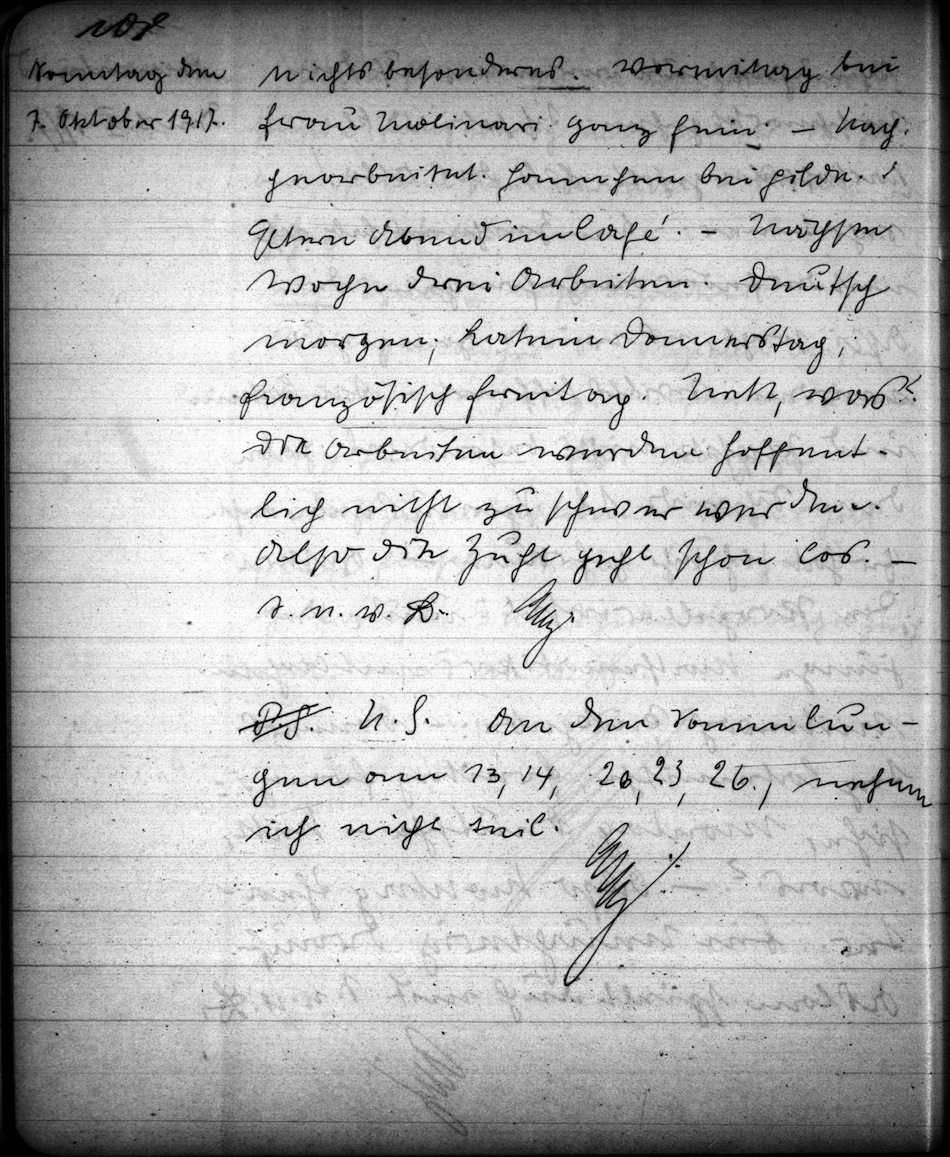 Sonntag den
7. Oktober 1917.
nichts besonderes. Vormittag bei
Frau Molinari. Ganz fein. – Nach.
gearbeitet. Hannchen bei Hilde.
Eltern Abend im Café. – Nächste
Woche drei Arbeiten. Deutsch
morgen, Latein Donnerstag,
Französisch Freitag. Nett, was?
Die Arbeiten werden hoffent-
lich nicht zu schwer werden.
Also die Zucht geht schon los. –
N. S. An den Sammlun-
gen am 13, 14, 20, 23, 26., nehme
ich nicht teil.